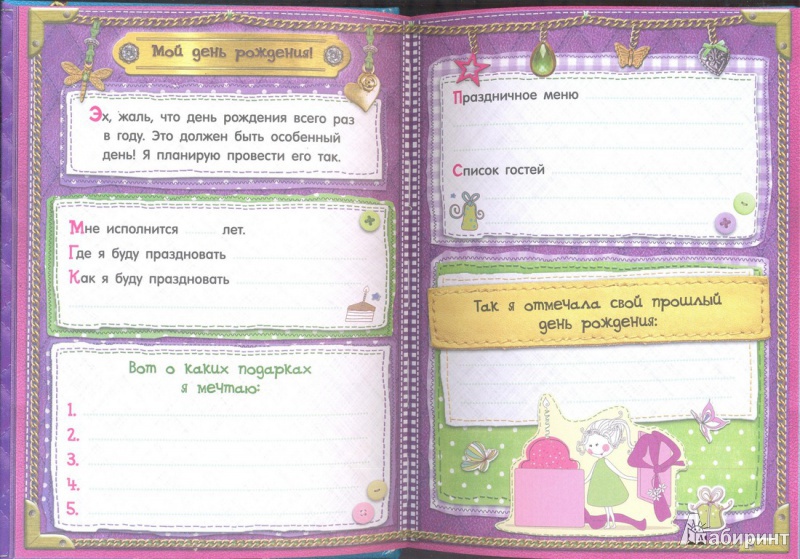 Мой день рождения!
Эх, жаль, что день рождения всего раз
в году. Это должен быть особенный
день! Я планирую провести его так.
Мне исполнится лет.
Где я буду праздновать
Как я буду праздновать
Вот о каких подарках
я мечтаю:
1.
2.
3.
4.
5.
Праздничное меню
Список гостей
Так я отмечала свой прошлый
день рождения:
Лабиринт